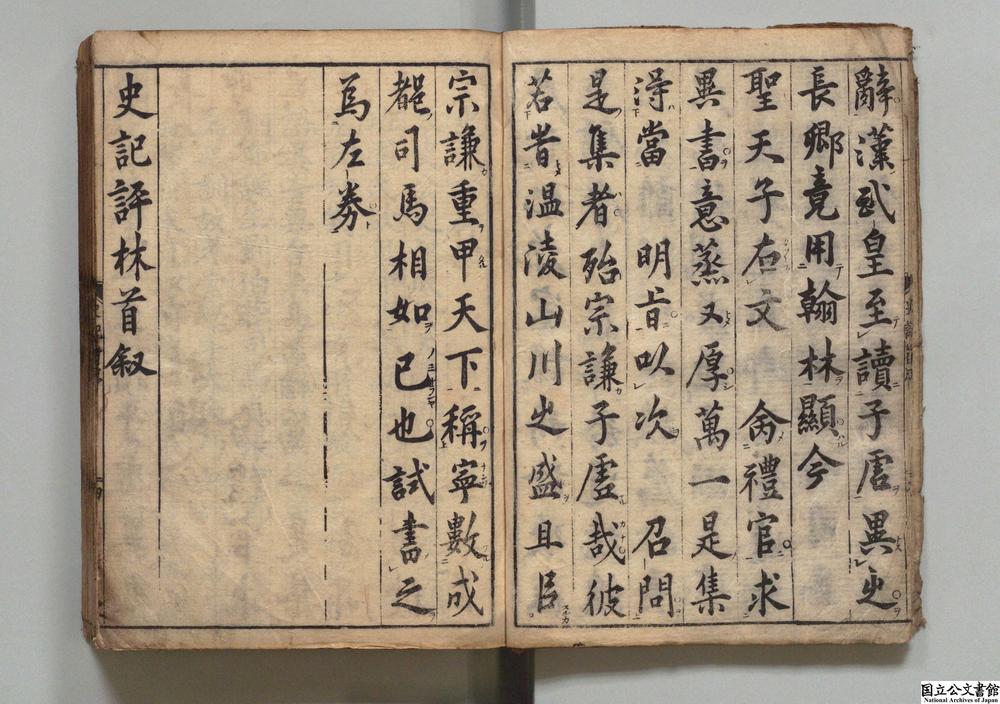 辭漢武皇至讀子虛異之
長卿竟用翰林顯今
聖天子右文 命禮官求
異書意蒸又厚萬一是集
得當 明旨以次 召問
是集者殆宗謙子虛哉彼
若昔温陵山川之盛且
宗謙重甲天下稱寧數成
都司馬相如已也試書之
為左券
史記評林首敘
国立公文書館
National Archives of Japan